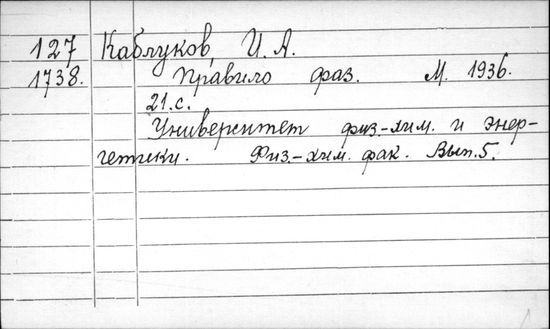 127 Каблуков, И. А.
1738. Правило фаз. М. 1936.
21.с.
Университет физ.-хим. и энер-
гетики. Физ.-хим. фак. Вып.5.
1